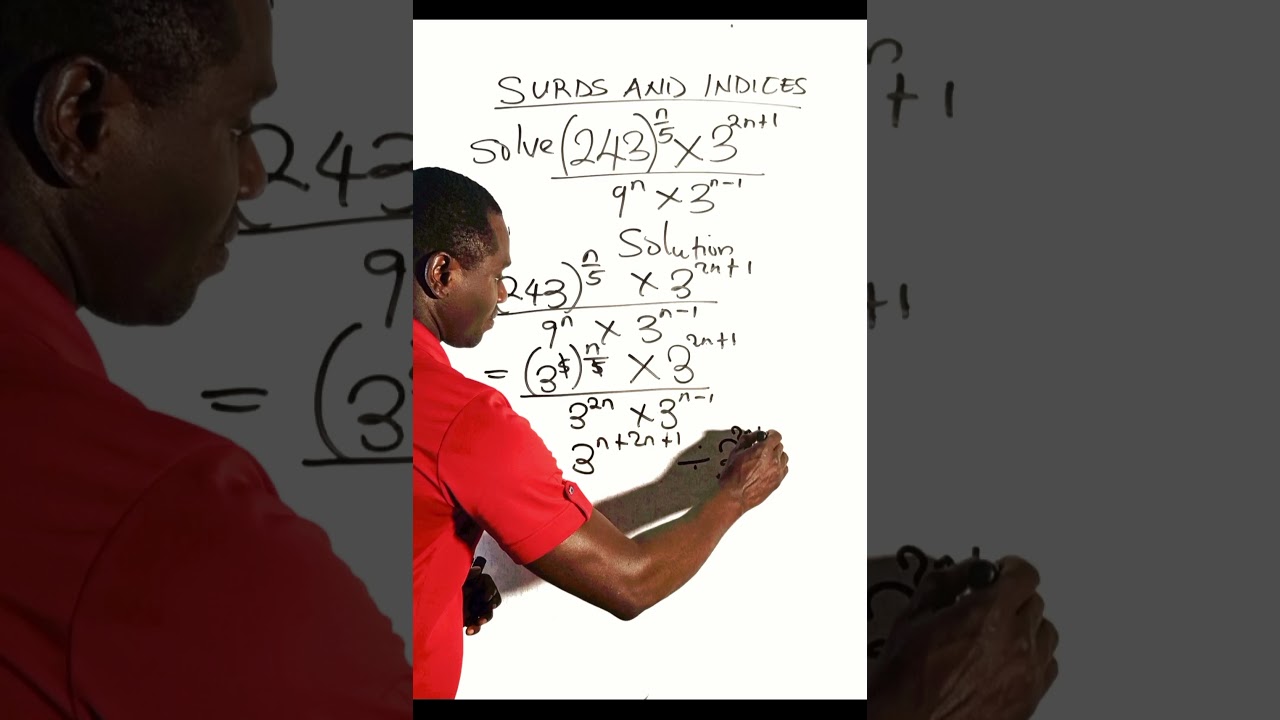 SURDS AND INDICES
Solve (243)^(n/5) × 3^(2n+1)
9^n × 3^(n-1)
Solution
243)^(n/5) × 3^(2n+1)
9^n × 3^(n-1)
= (3^5)^(n/5) × 3^(2n+1)
3^(2n) × 3^(n-1)
3^(n+2n+1) ÷